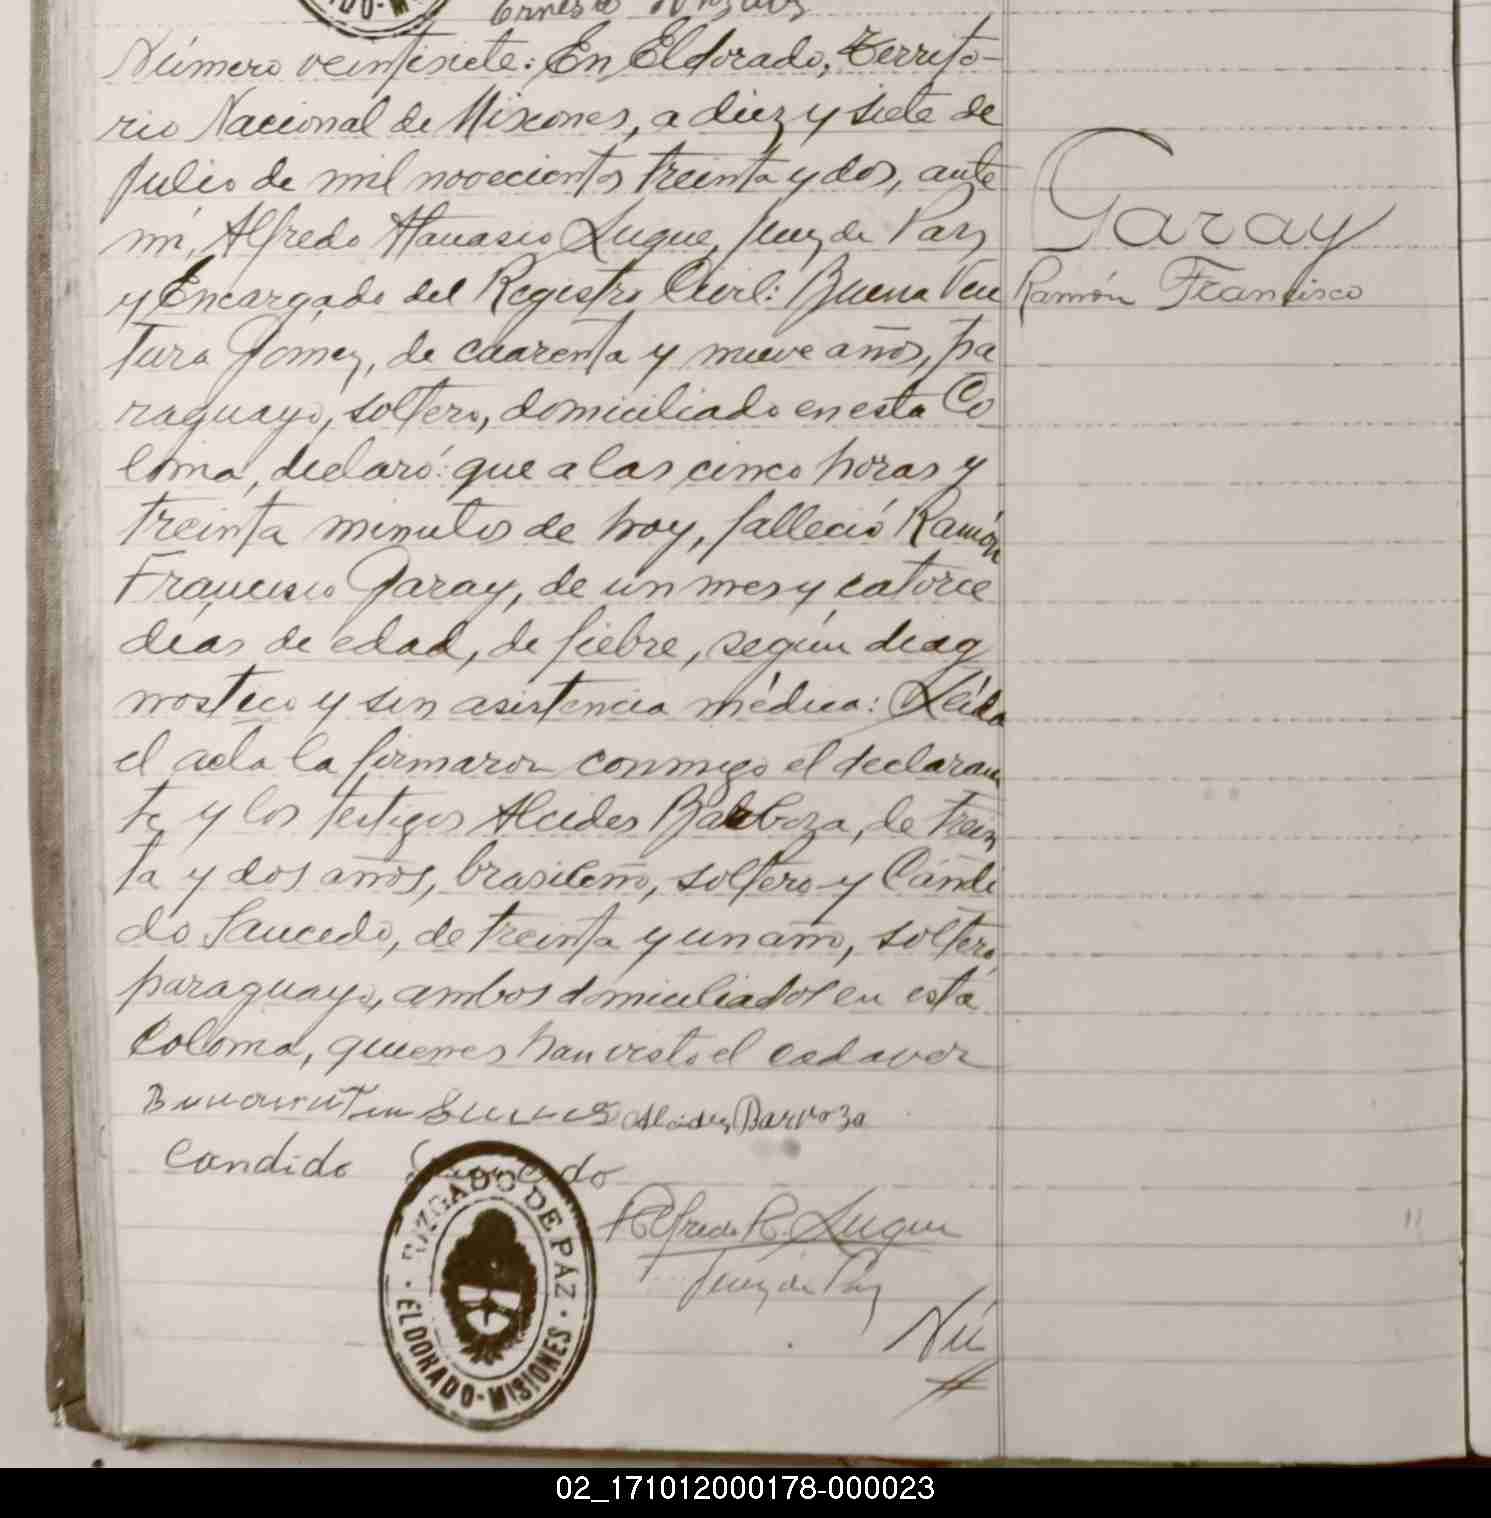 Ernesto
Número veintisiete: En Eldorado, Territo-
rio Nacional de Misiones, a diez y siete de
julio de mil novecientos treinta y dos, ante
mi, Alfredo Atanasio Luque, Juez de Paz
y Encargado del Registro Civil: Buena Ven
tura Gómez, de cuarenta y nueve años, pa
raguayo, soltero, domiciliado en esta Co
lonia, declaró: que a las cinco horas y
treinta minutos de hoy, falleció Ramón
Francisco Garay, de un mes y catorce
días de edad, de fiebre, según diag
nostico y sin asistencia médica: Leída
el acta la firmaron conmigo el declaran
te y los testigos Alcides Barboza, de trein
ta y dos años, brasileño, soltero y Cándi
do Saucedo, de treinta y un año, soltero,
paraguayo, ambos domiciliados en esta
Colonia, quienes han visto el cadaver
Garay
Ramón Francisco
Alcides Barvoza
Candido
Alfredo A. Luque
Juez de Paz
JUZGADO DE PAZ
ELDORADO-MISIONES
Nú
02_171012000178-000023